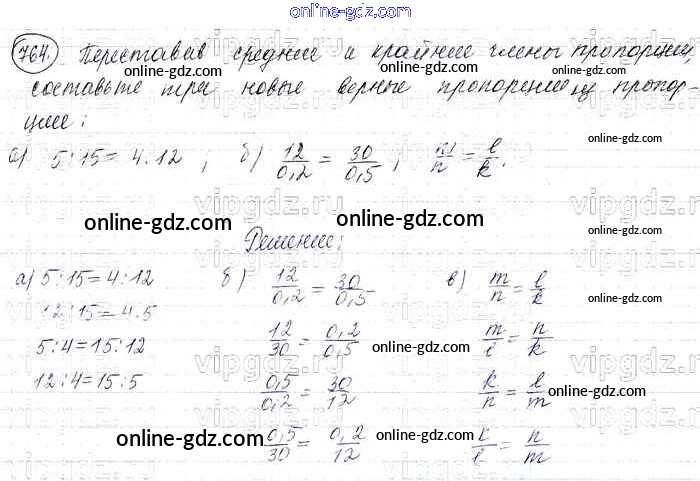 online-gdz.com
764. Переставив средние и крайние члены пропорции,
составьте три новые верные пропорции из пропор-
ции:
а) 5:15=4:12; б) 12/0,2 = 30/0,5; m/n = l/k.
Решение:
а) 5:15=4:12 б) 12/0,2 = 30/0,5 в) m/n = l/k
12:15=4:5 12/30 = 0,2/0,5 m/l = n/k
5:4=15:12 0,5/0,2 = 30/12 k/n = l/m
12:4=15:5 0,5/30 = 0,2/12 k/l = n/m
online-gdz.com
online-gdz.com
online-gdz.com
online-gdz.com
online-gdz.com
online-gdz.com
online-gdz.com
online-gdz.com
online-gdz.com
online-gdz.com
online-gdz.com
online-gdz.com
vipgdz.ru
vipgdz.ru
vipgdz.ru